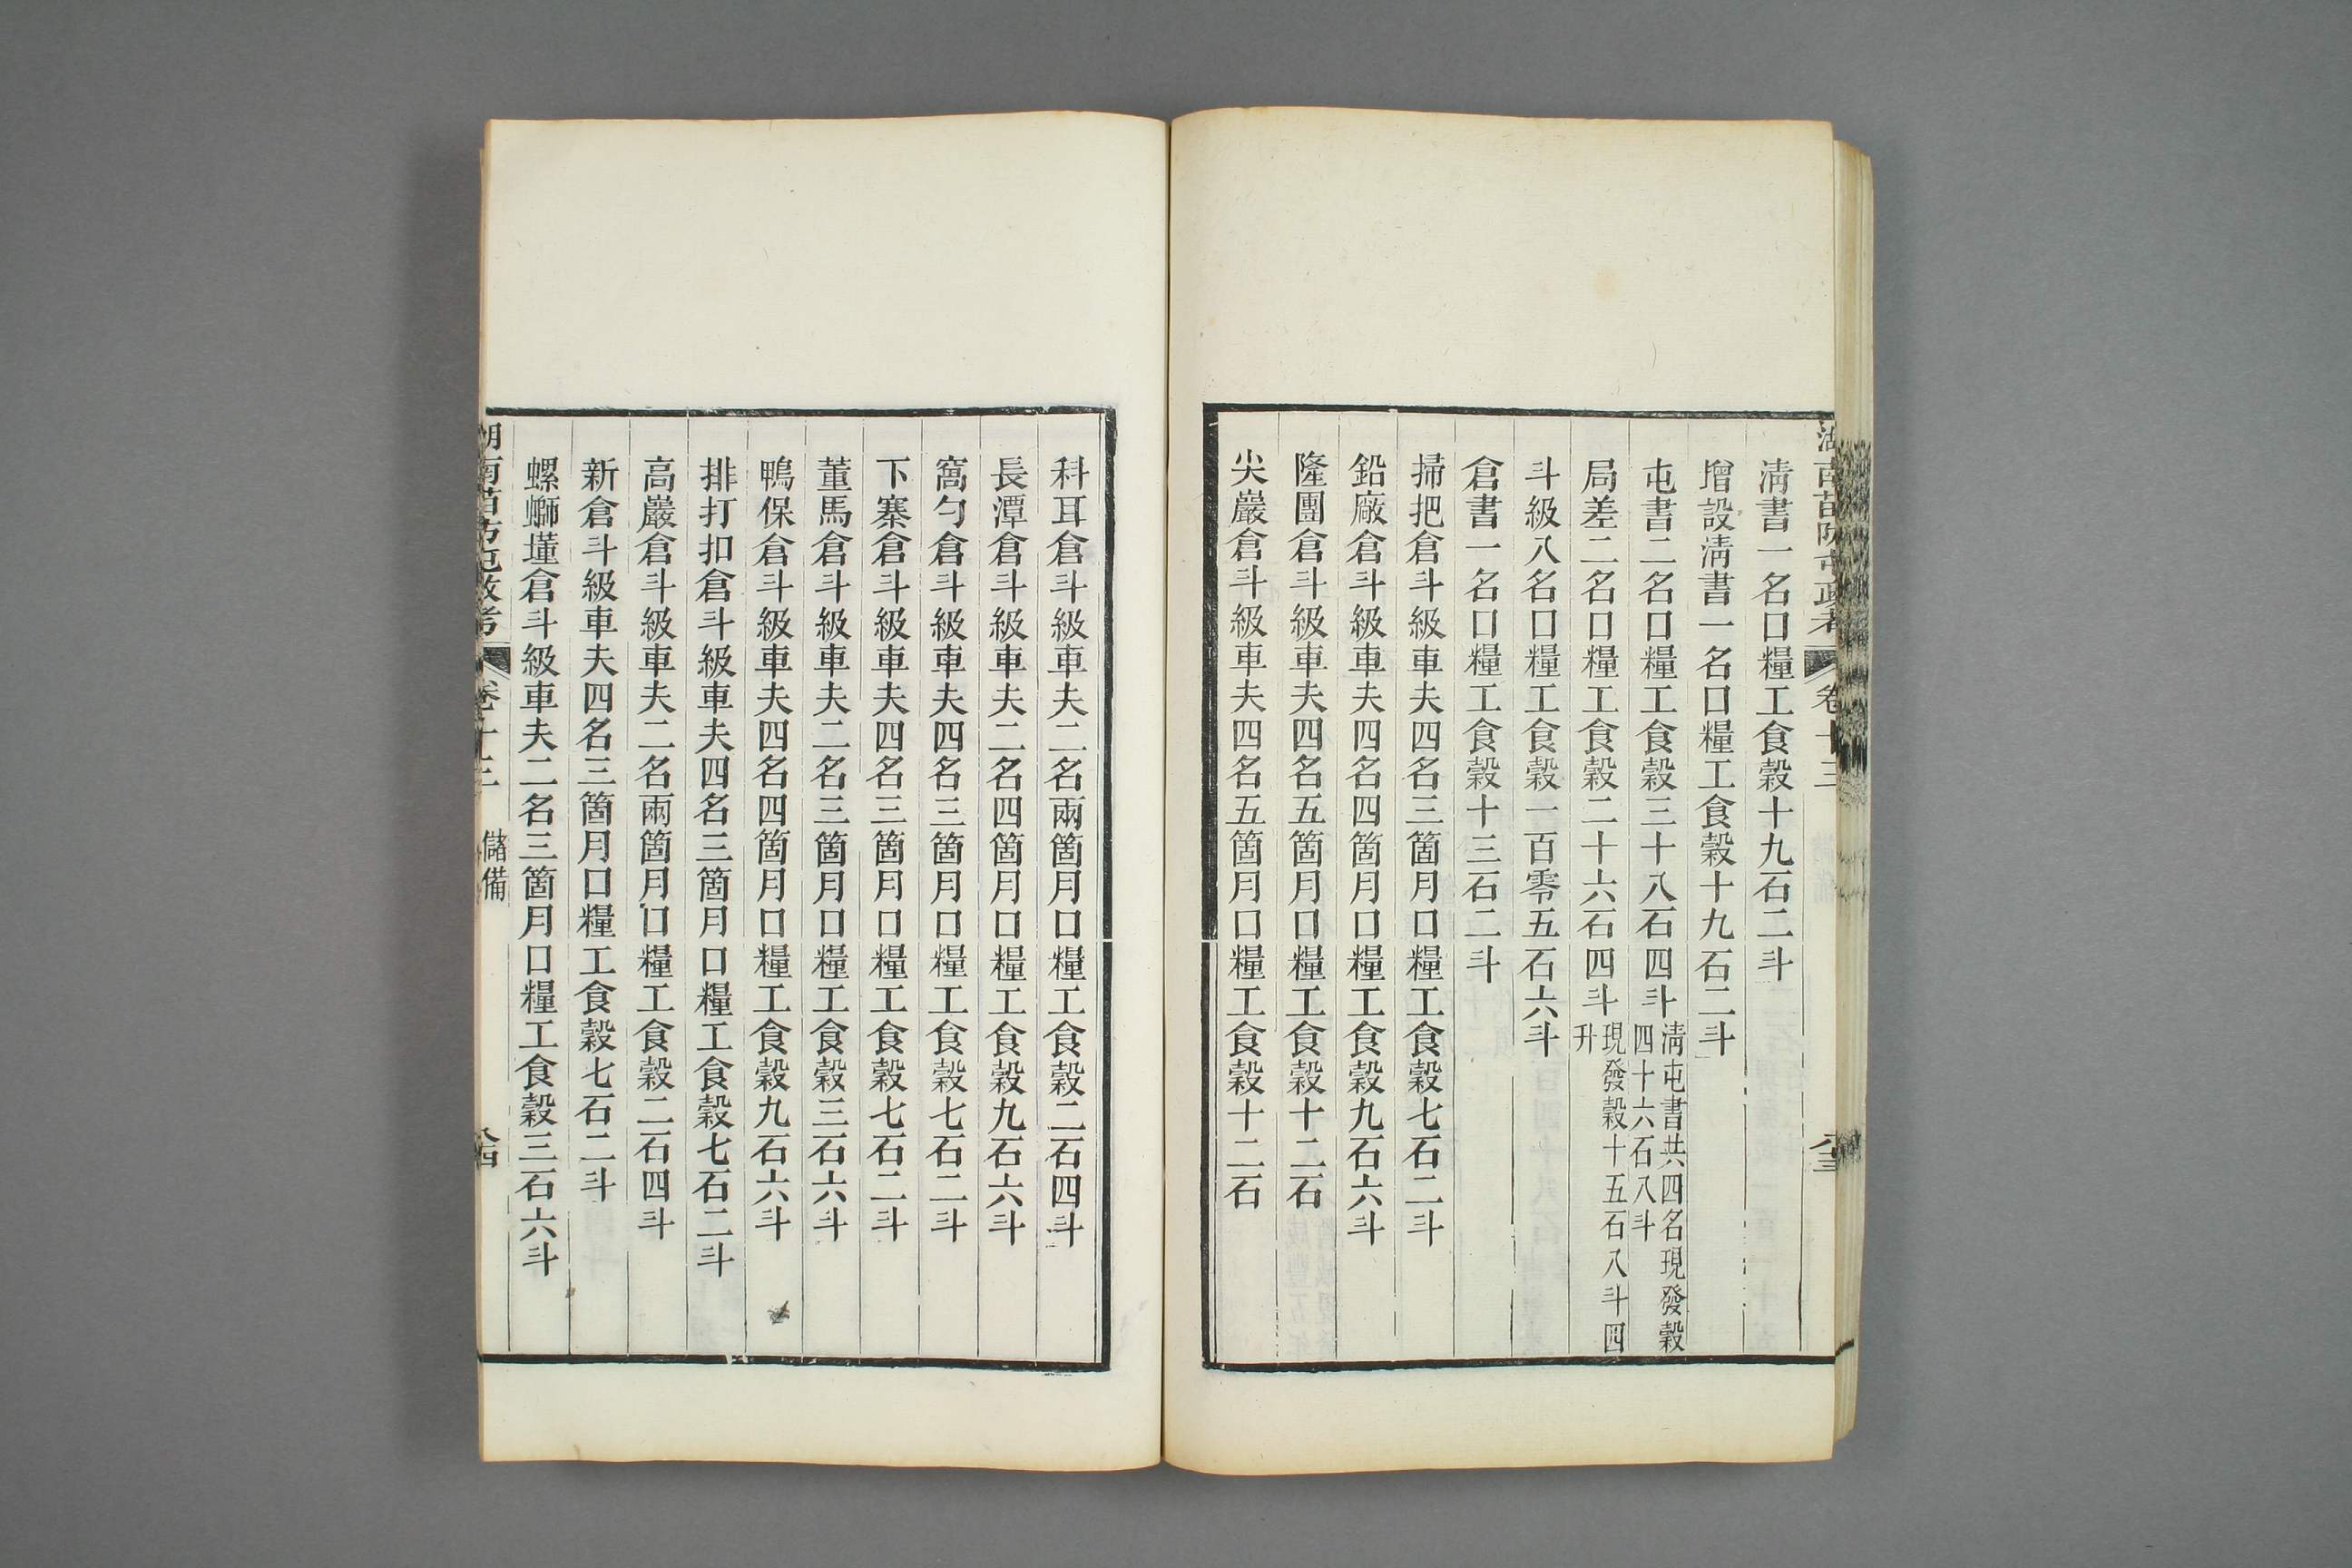 湖南苗防屯政考
卷十三
八三
清書一名口糧工食穀十九石二斗
增設清書一名口糧工食穀十九石二斗
屯書二名口糧工食穀三十八石四斗
清屯書共四名現發穀
四十六石八斗
局差二名口糧工食穀二十六石四斗
現發穀十五石八斗四
升
斗級八名口糧工食穀一百零五石六斗
倉書一名口糧工食穀十三石二斗
掃把倉斗級車夫四名三箇月口糧工食穀七石二斗
鉛廠倉斗級車夫四名四箇月口糧工食穀九石六斗
隆團倉斗級車夫四名五箇月口糧工食穀十二石
尖巖倉斗級車夫四名五箇月口糧工食穀十二石
科耳倉斗級車夫二名兩箇月口糧工食穀二石四斗
長潭倉斗級車夫二名四箇月口糧工食穀九石六斗
窩勺倉斗級車夫四名三箇月口糧工食穀七石二斗
下寨倉斗級車夫四名三箇月口糧工食穀七石二斗
董馬倉斗級車夫二名三箇月口糧工食穀三石六斗
鴨保倉斗級車夫四名四箇月口糧工食穀九石六斗
排打扣倉斗級車夫四名三箇月口糧工食穀七石二斗
高巖倉斗級車夫二名兩箇月口糧工食穀二石四斗
新倉斗級車夫四名三箇月口糧工食穀七石二斗
螺螄墐倉斗級車夫二名三箇月口糧工食穀三石六斗
湖南苗防屯政考
卷十三
儲備
八四